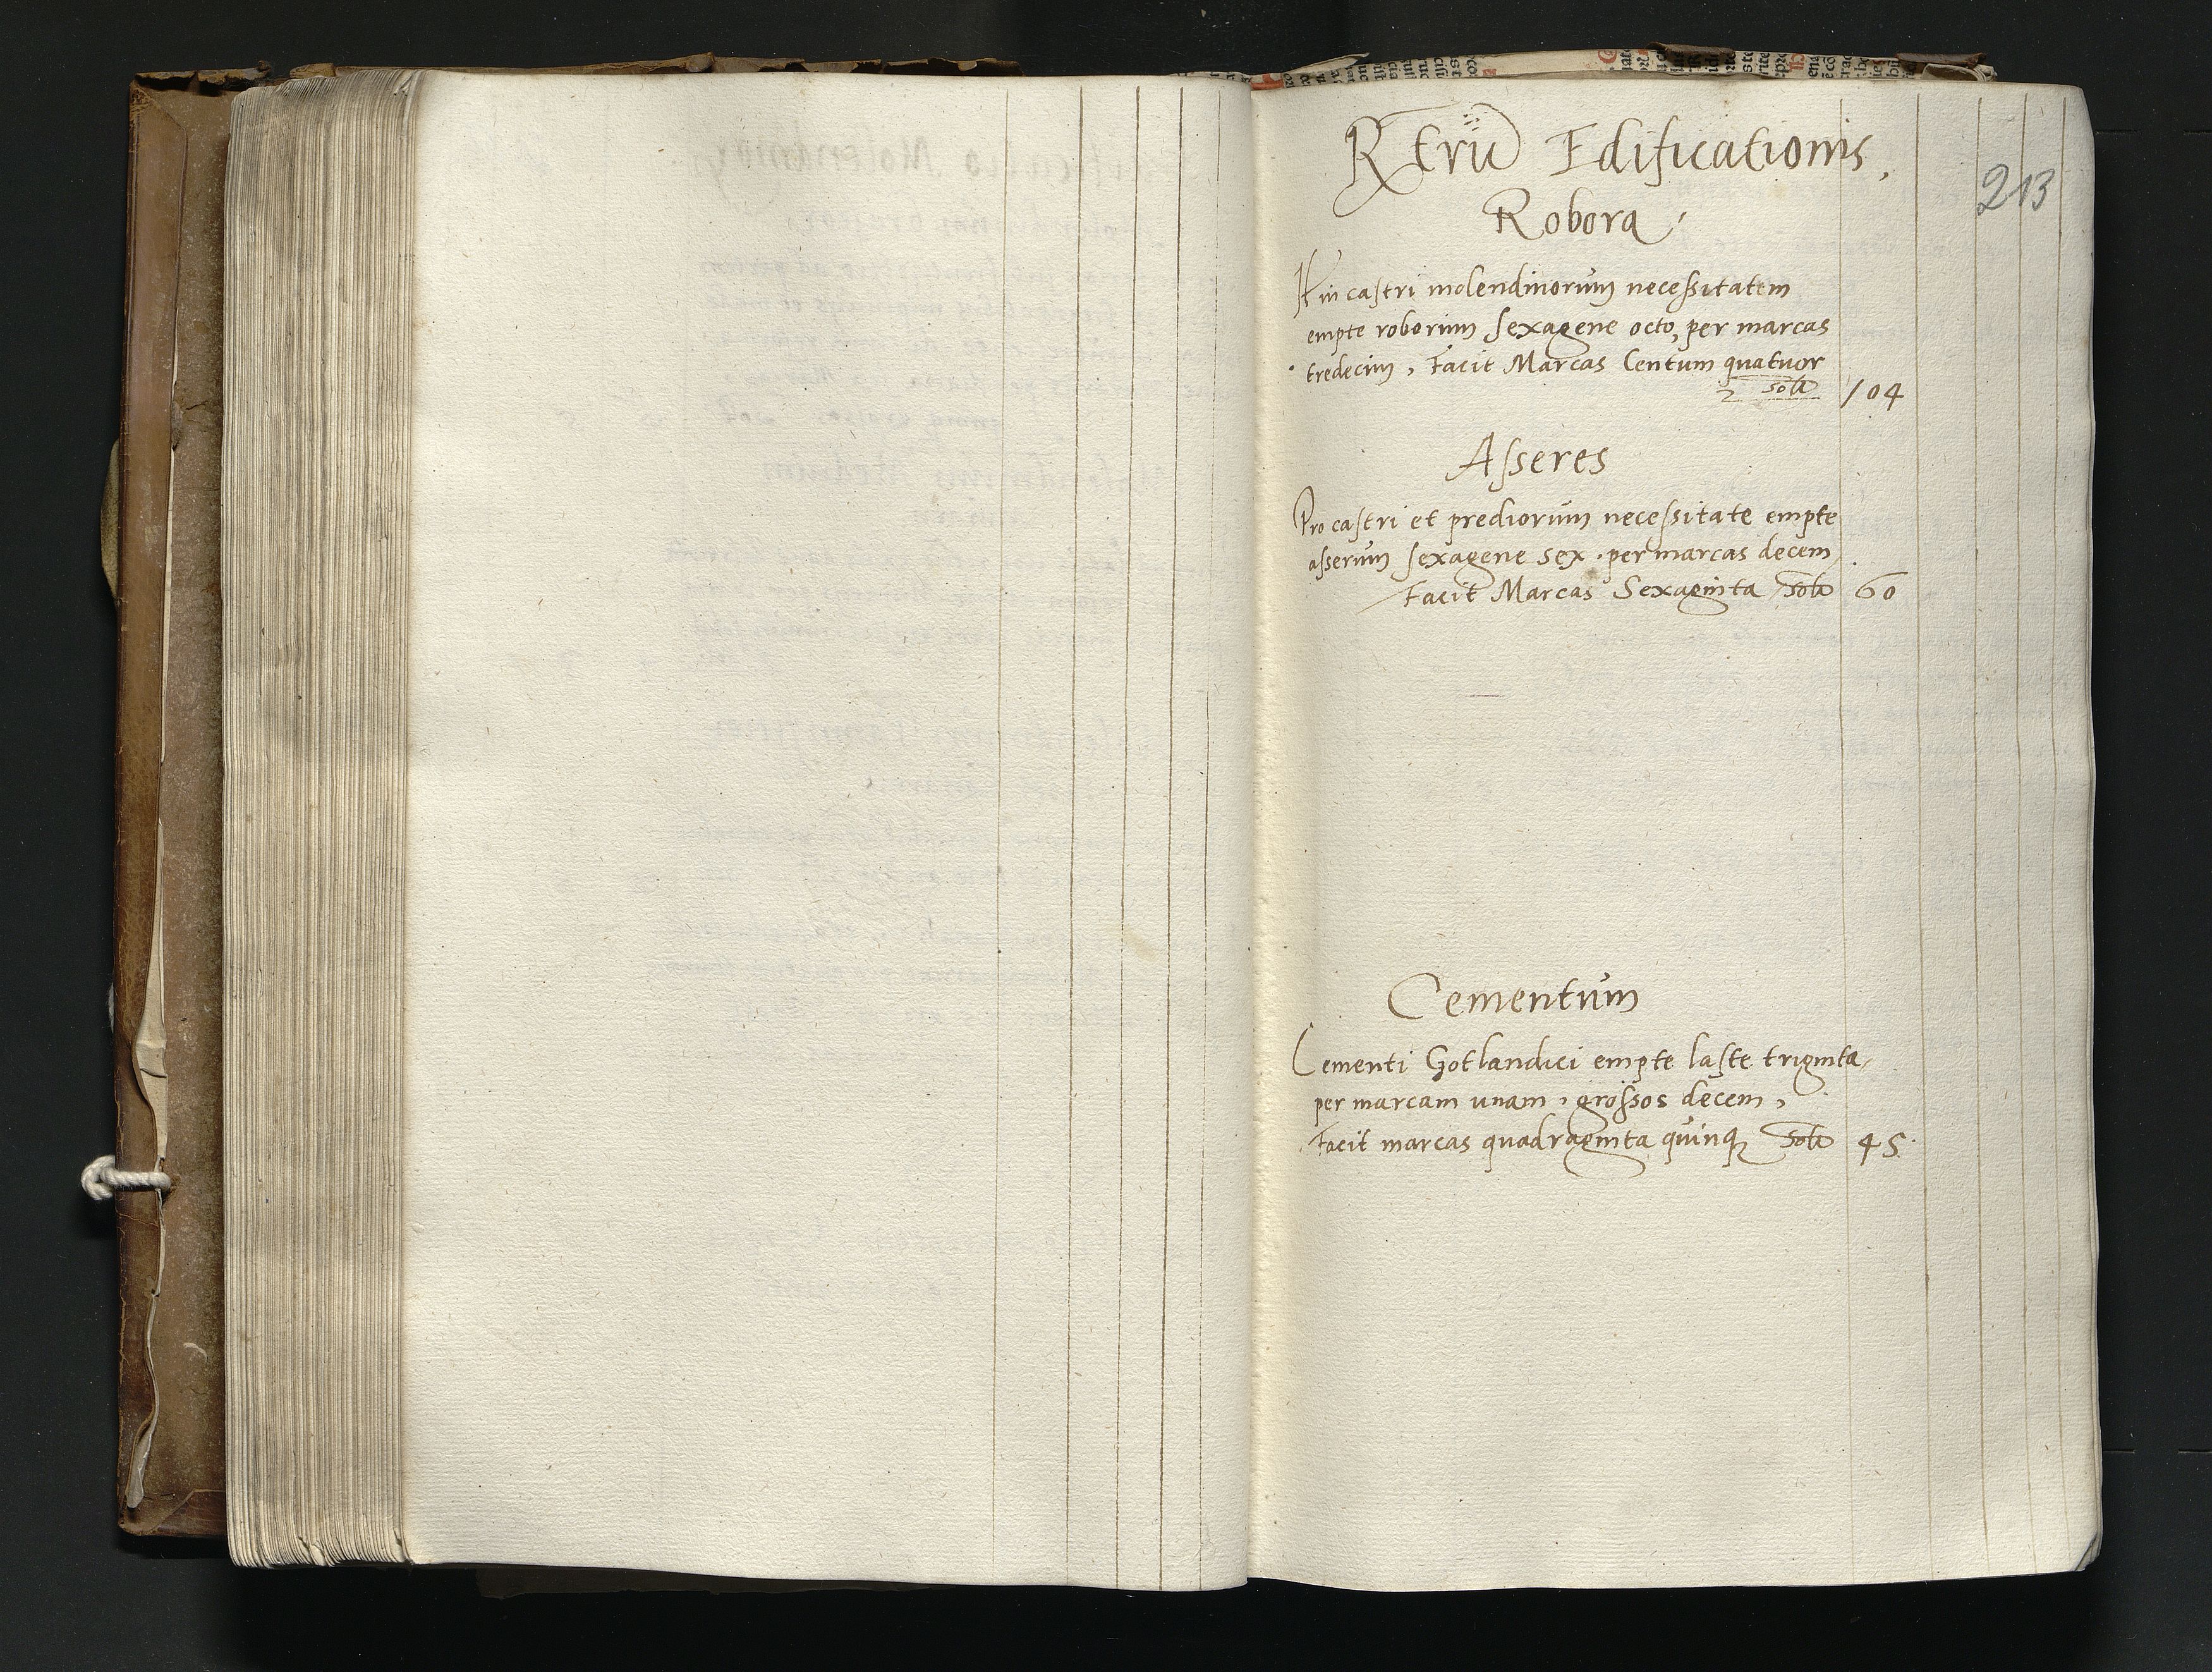 Reru Edificationis,
213
Robora
It in castri molendinorum necessitatem
empte roborum sexagene octo, per marcas
tredecim, Facit Marcas Centum quatuor
2 solt 104
Asseres
Pro castri et prediorum necessitate empte
asserum sexagene sex. per marcas decem,
Facit Marcas Sexaginta solt 60
Cementum
Cementi Gotlandici empte laste triginta,
per marcam unam, grossos decem,
Facit marcas quadraginta quinq solt 45